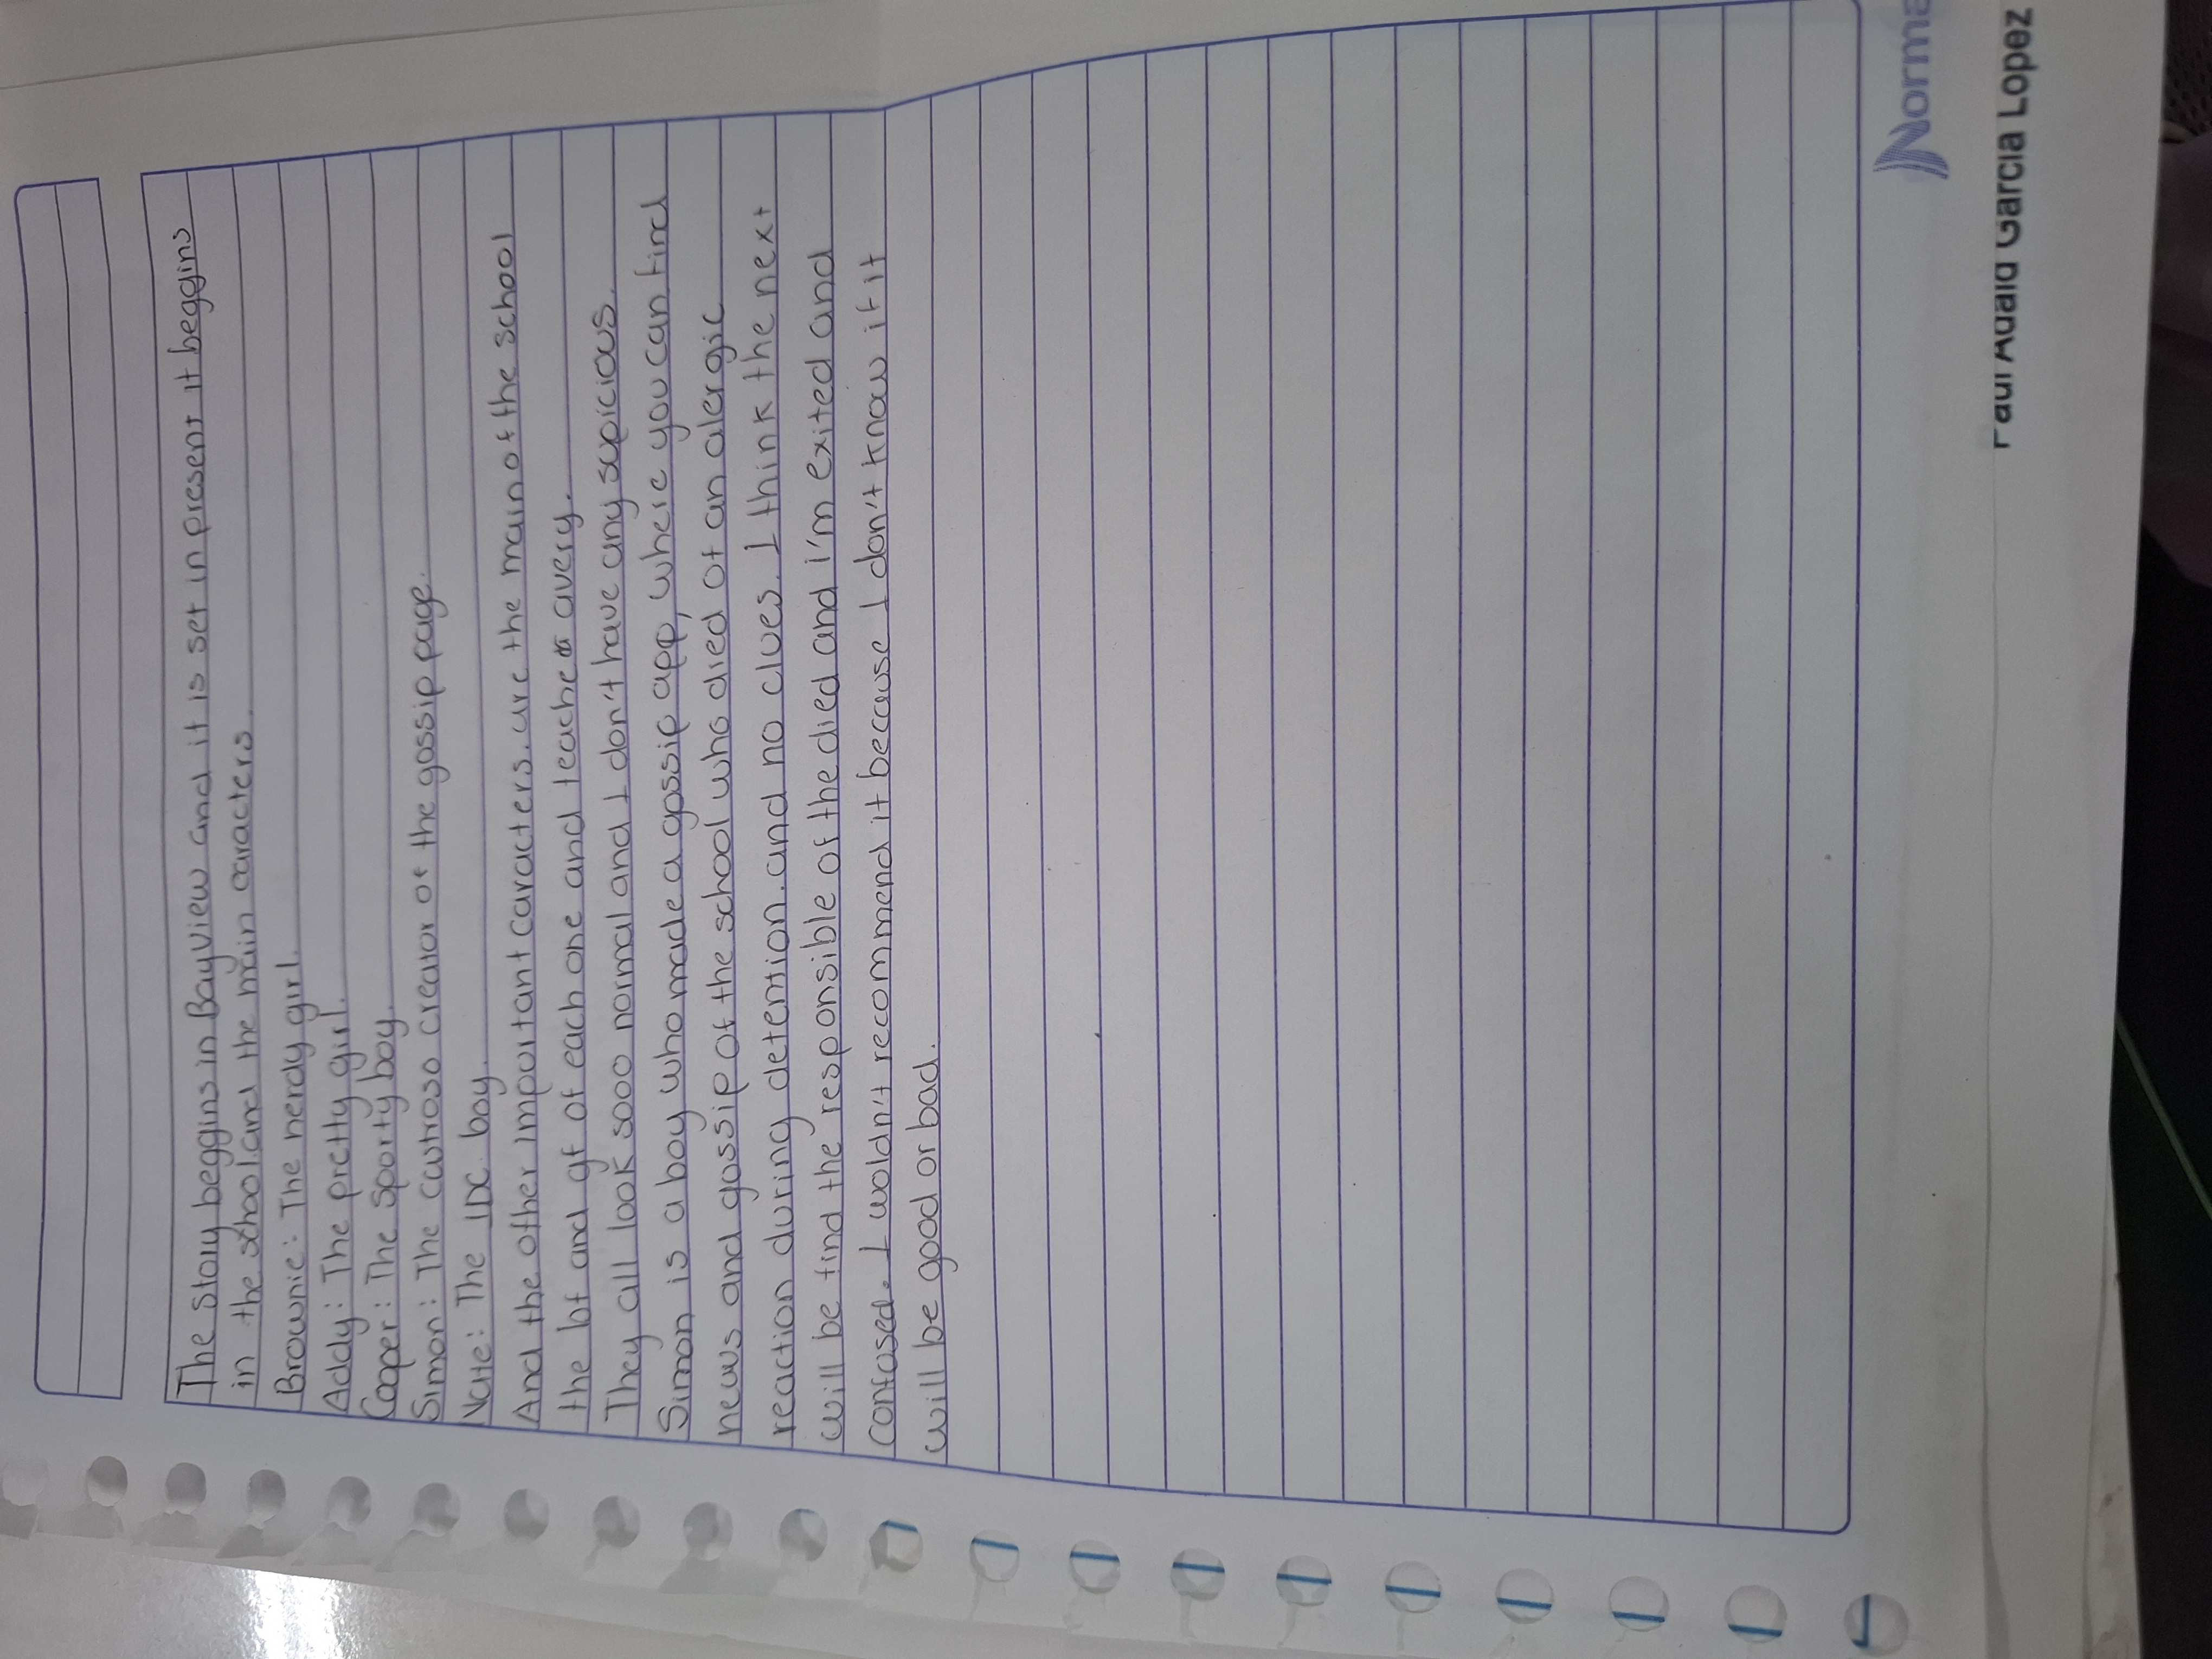 The story beggins in Bayview and it is set in present it beggins
in the school.and the main caracters.
Brownie: The nerdy girl.
Addy: The pretty girl.
Cooper: The Sporty boy.
Simon: The cautroso creator of the gossip page.
Nate: The IDC boy.
And the other important caracters. are the main of the school
the bf and gf of each one and teacher avery.
They all look sooo normal and I don't have any supicious.
Simon is a boy who made a gossip app, where you can find
news and gossip of the school who died of an alergic
reaction during detention.and no clues. I think the next
will be find the responsible of the died and i'm exited and
confused. I woldn't recommend it because I don't know if it
will be good or bad.
Norma
Garcia Lopez